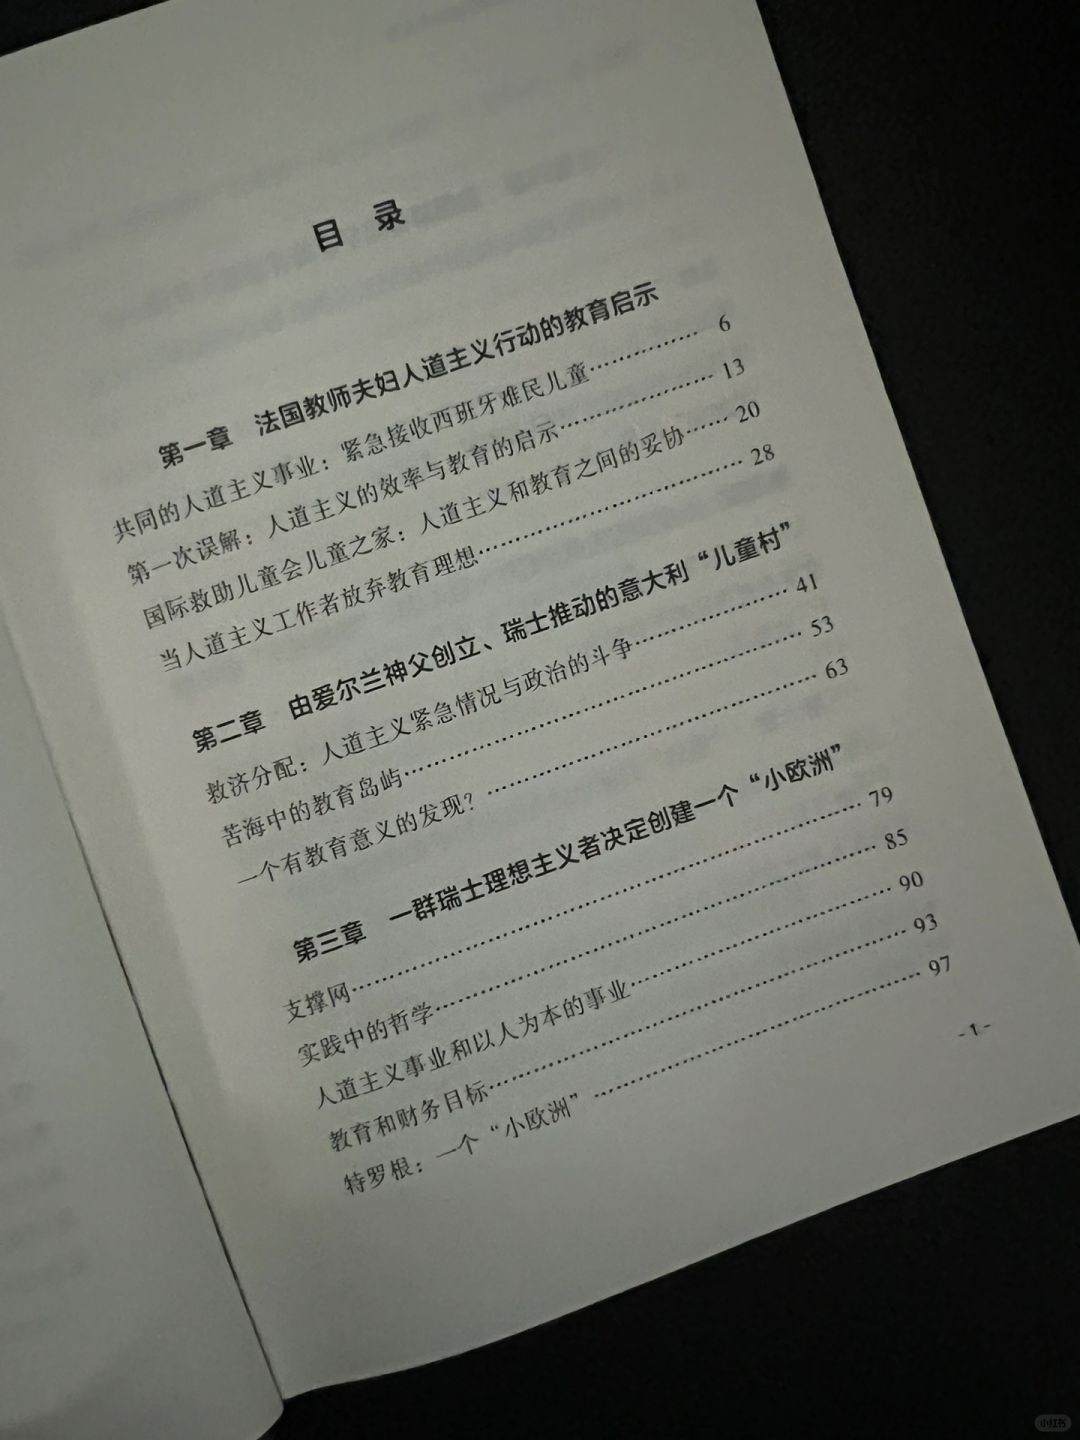 目 录
第一章 法国教师夫妇人道主义行动的教育启示
共同的人道主义事业：紧急接收西班牙难民儿童…………… 6
第一次误解：人道主义的效率与教育的启示…………… 13
国际救助儿童会儿童之家：人道主义和教育之间的妥协…… 20
当人道主义工作者放弃教育理想…………………… 28
第二章 由爱尔兰神父创立、瑞士推动的意大利“儿童村”
救济分配：人道主义紧急情况与政治的斗争…………… 41
苦海中的教育岛屿…………………………………… 53
一个有教育意义的发现？…………………………… 63
第三章 一群瑞士理想主义者决定创建一个“小欧洲”
支撑网………………………………………………… 79
实践中的哲学………………………………………… 85
人道主义事业和以人为本的事业…………………… 90
教育和财务目标……………………………………… 93
特罗根：一个“小欧洲”…………………………… 97
- 1 -
小红书